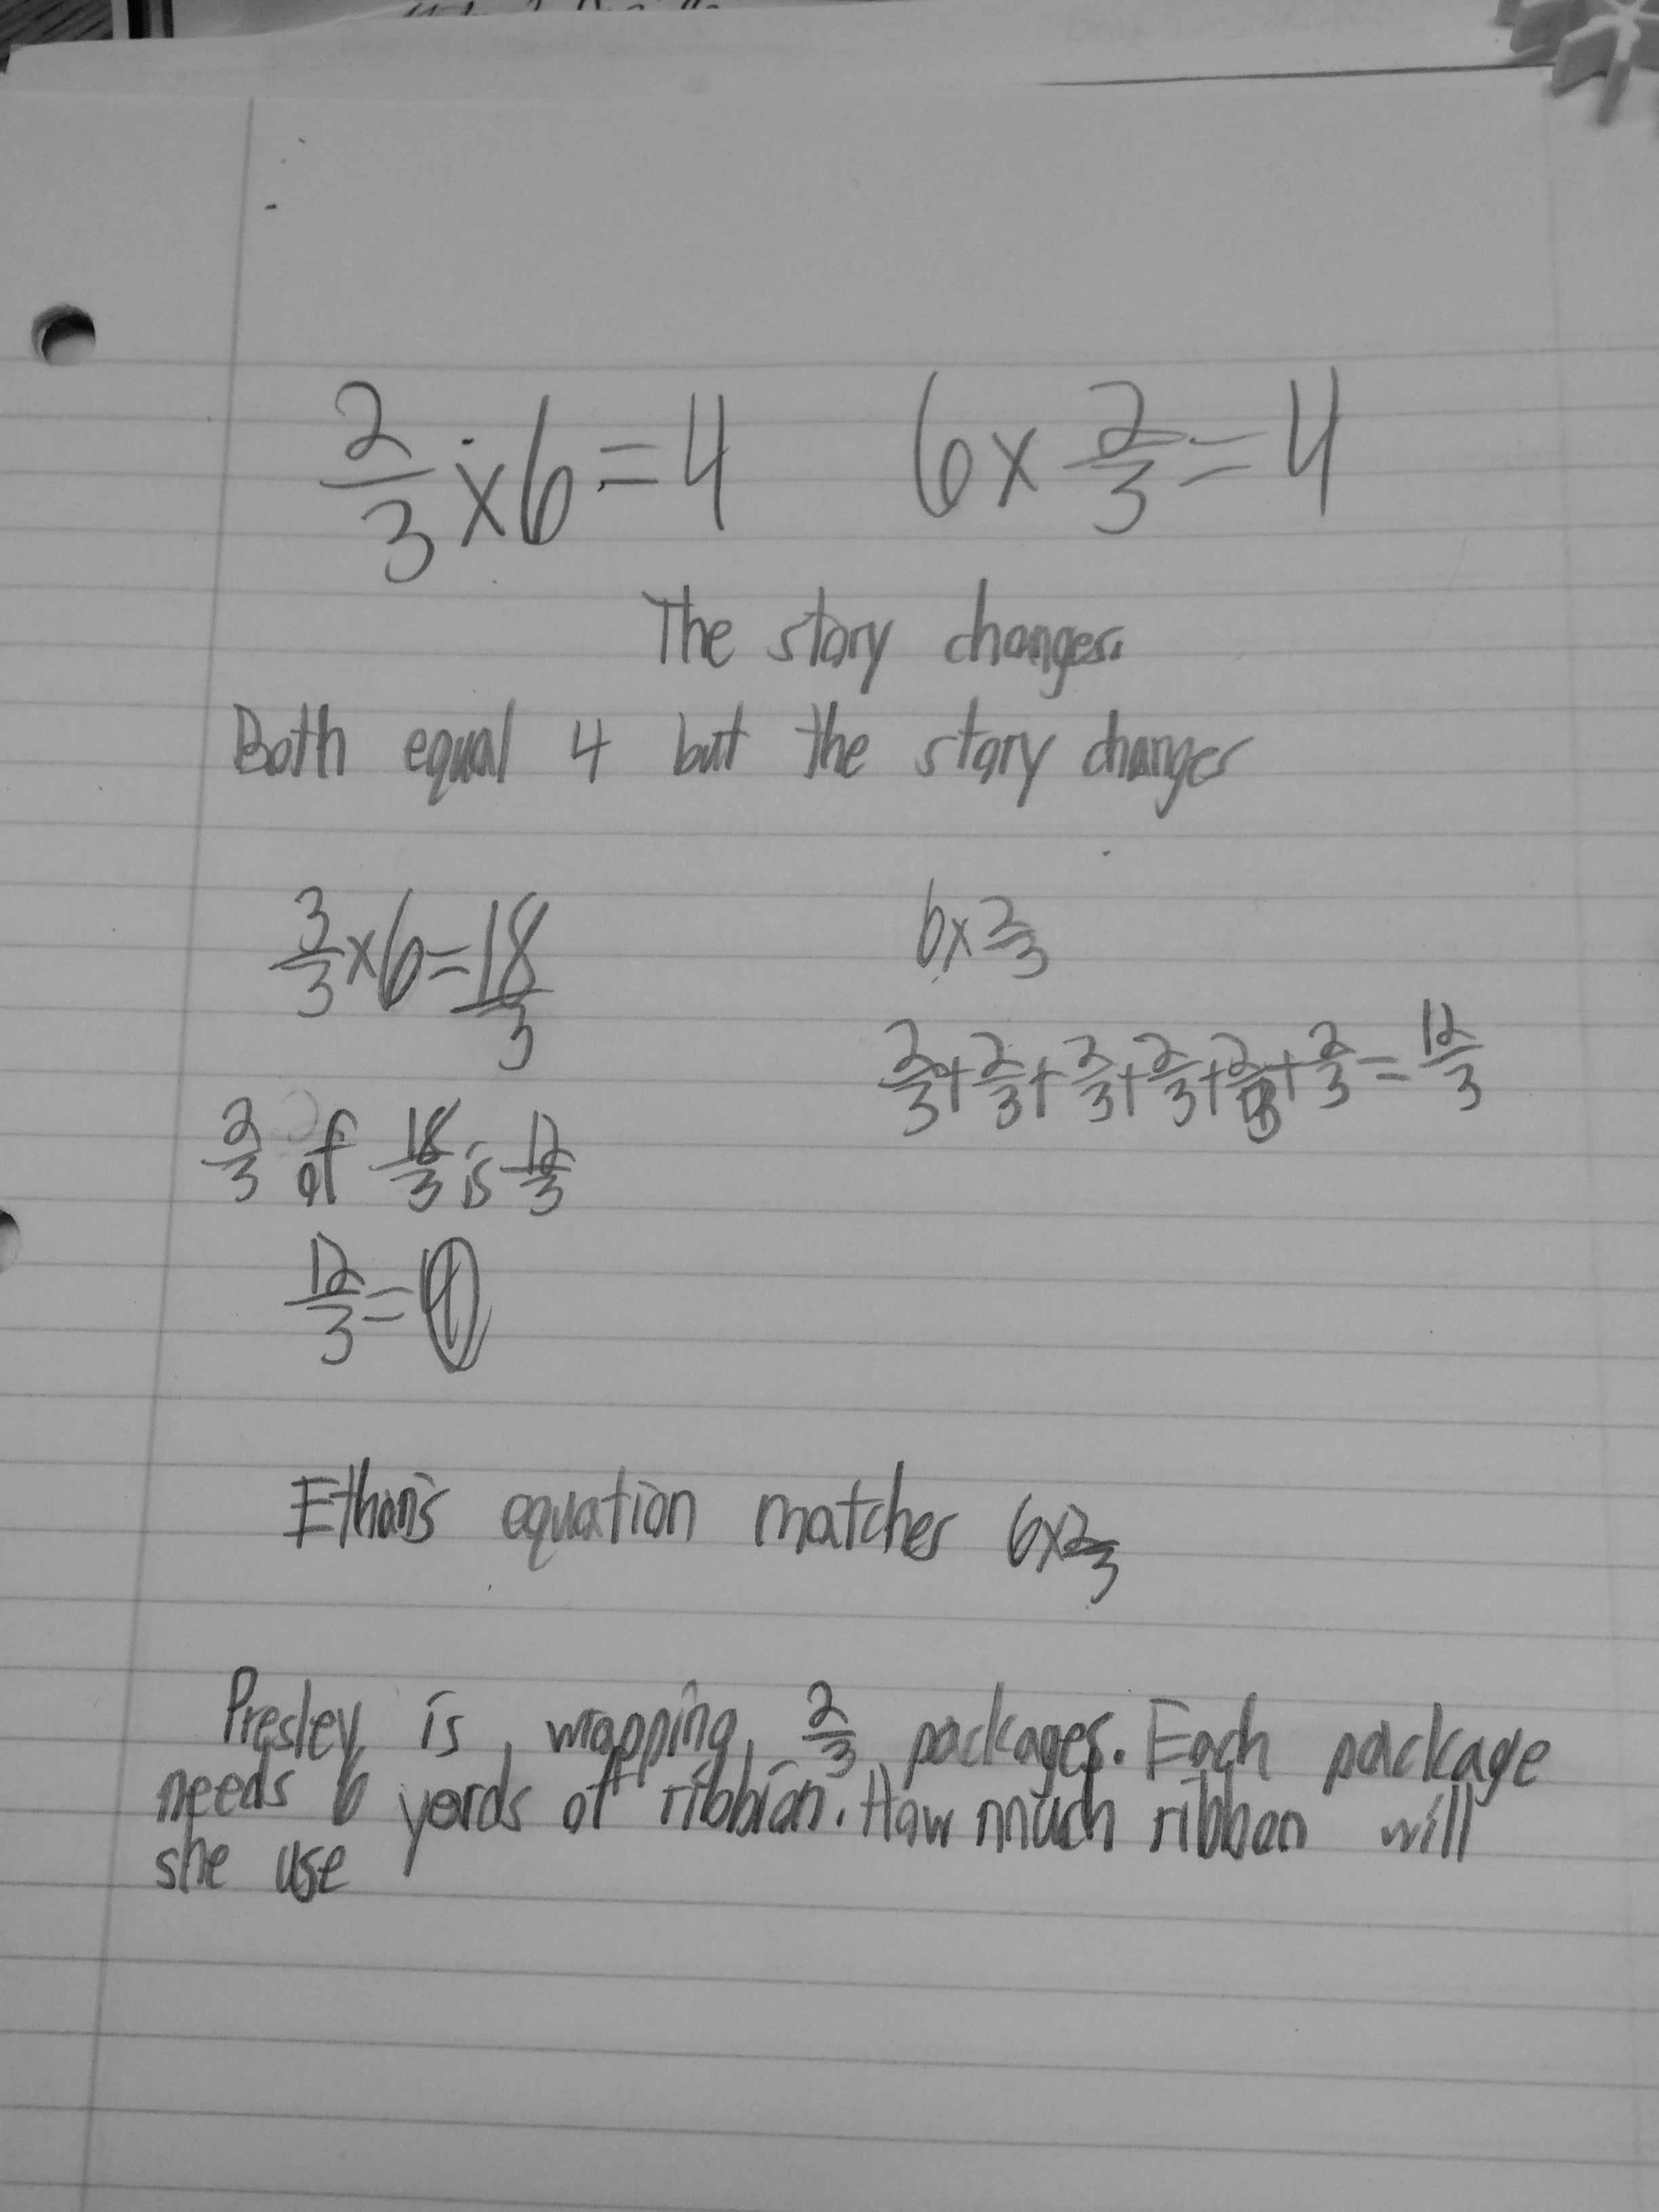 2/3 x 6 = 4    6 x 2/3 = 4
The story changes.
Both equal 4 but the story changes
3/3 x 6 = 18/3    6 x 2/3
2/3 + 2/3 + 2/3 + 2/3 + 2/3 + 2/3 = 12/3
2/3 of 18/3 is 12/3
12/3 = 4
Ethan's equation matches 6 x 2/3
Presley is wrapping 2/3 packages. Each package
needs 6 yards of ribbion. How much ribbon will
she use